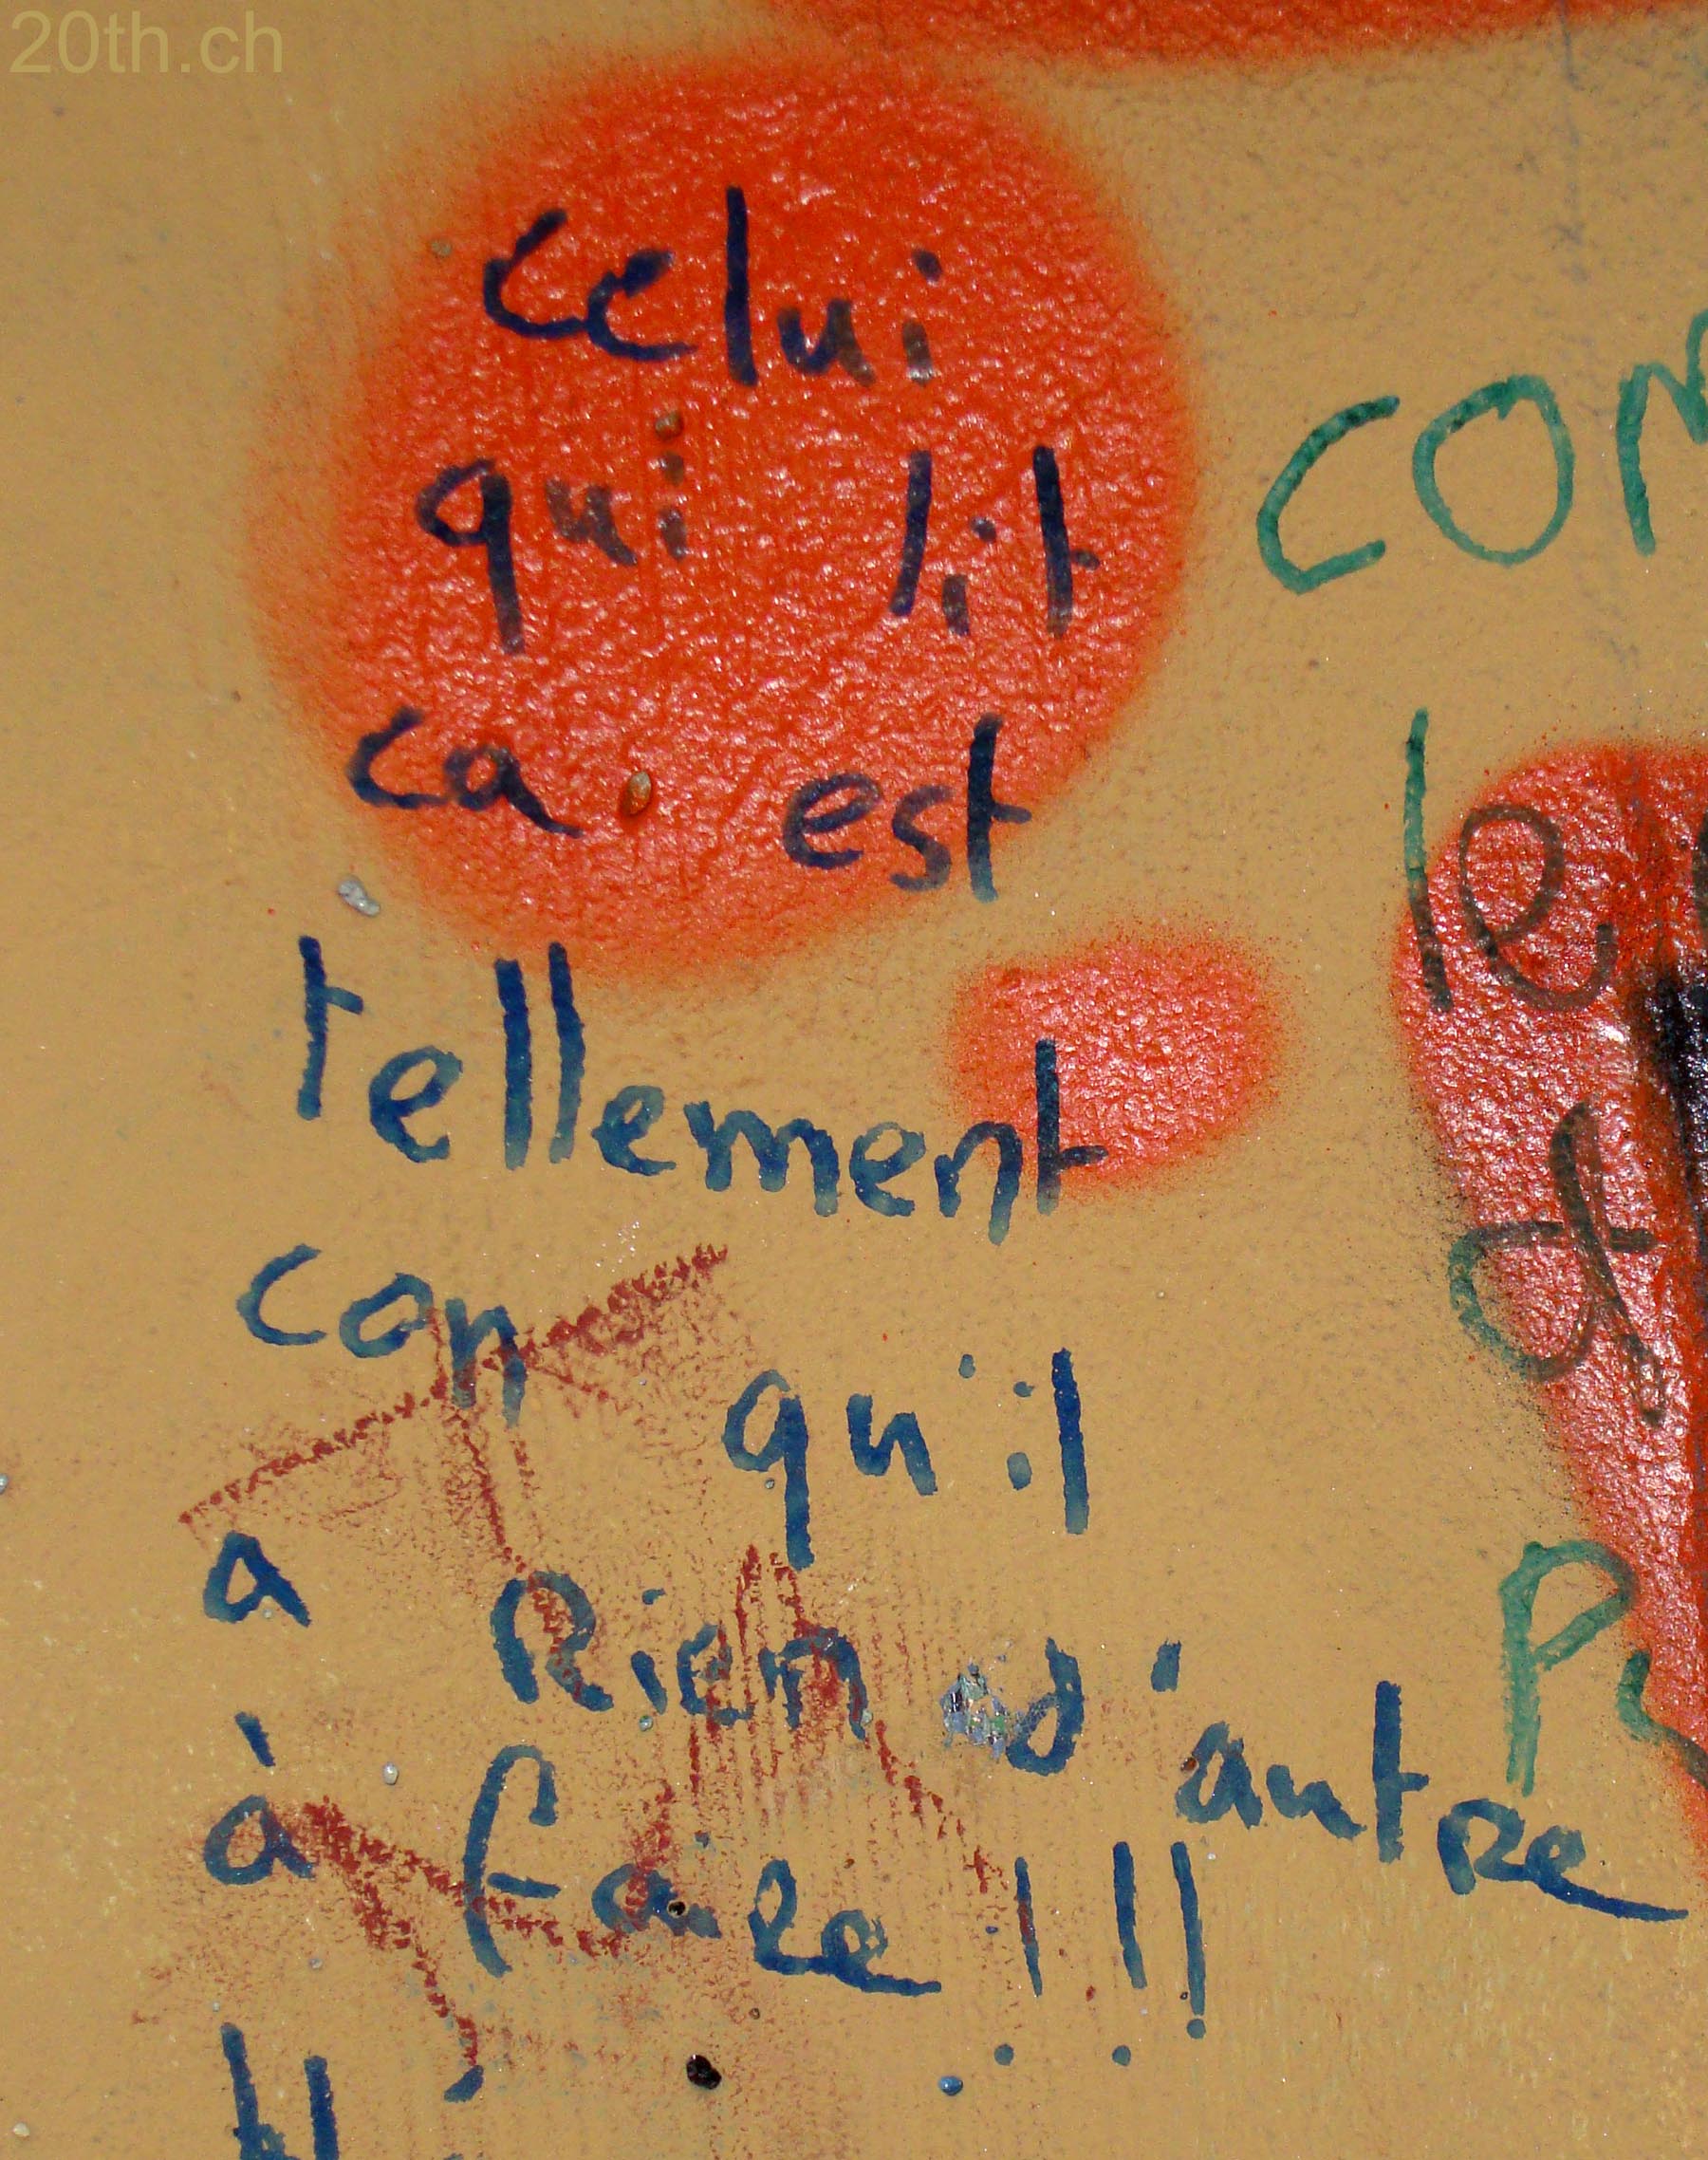 20th.ch
celui
qui lit
ca est
tellement
con qu'il
a Rien d'autre
à faire !!!
le